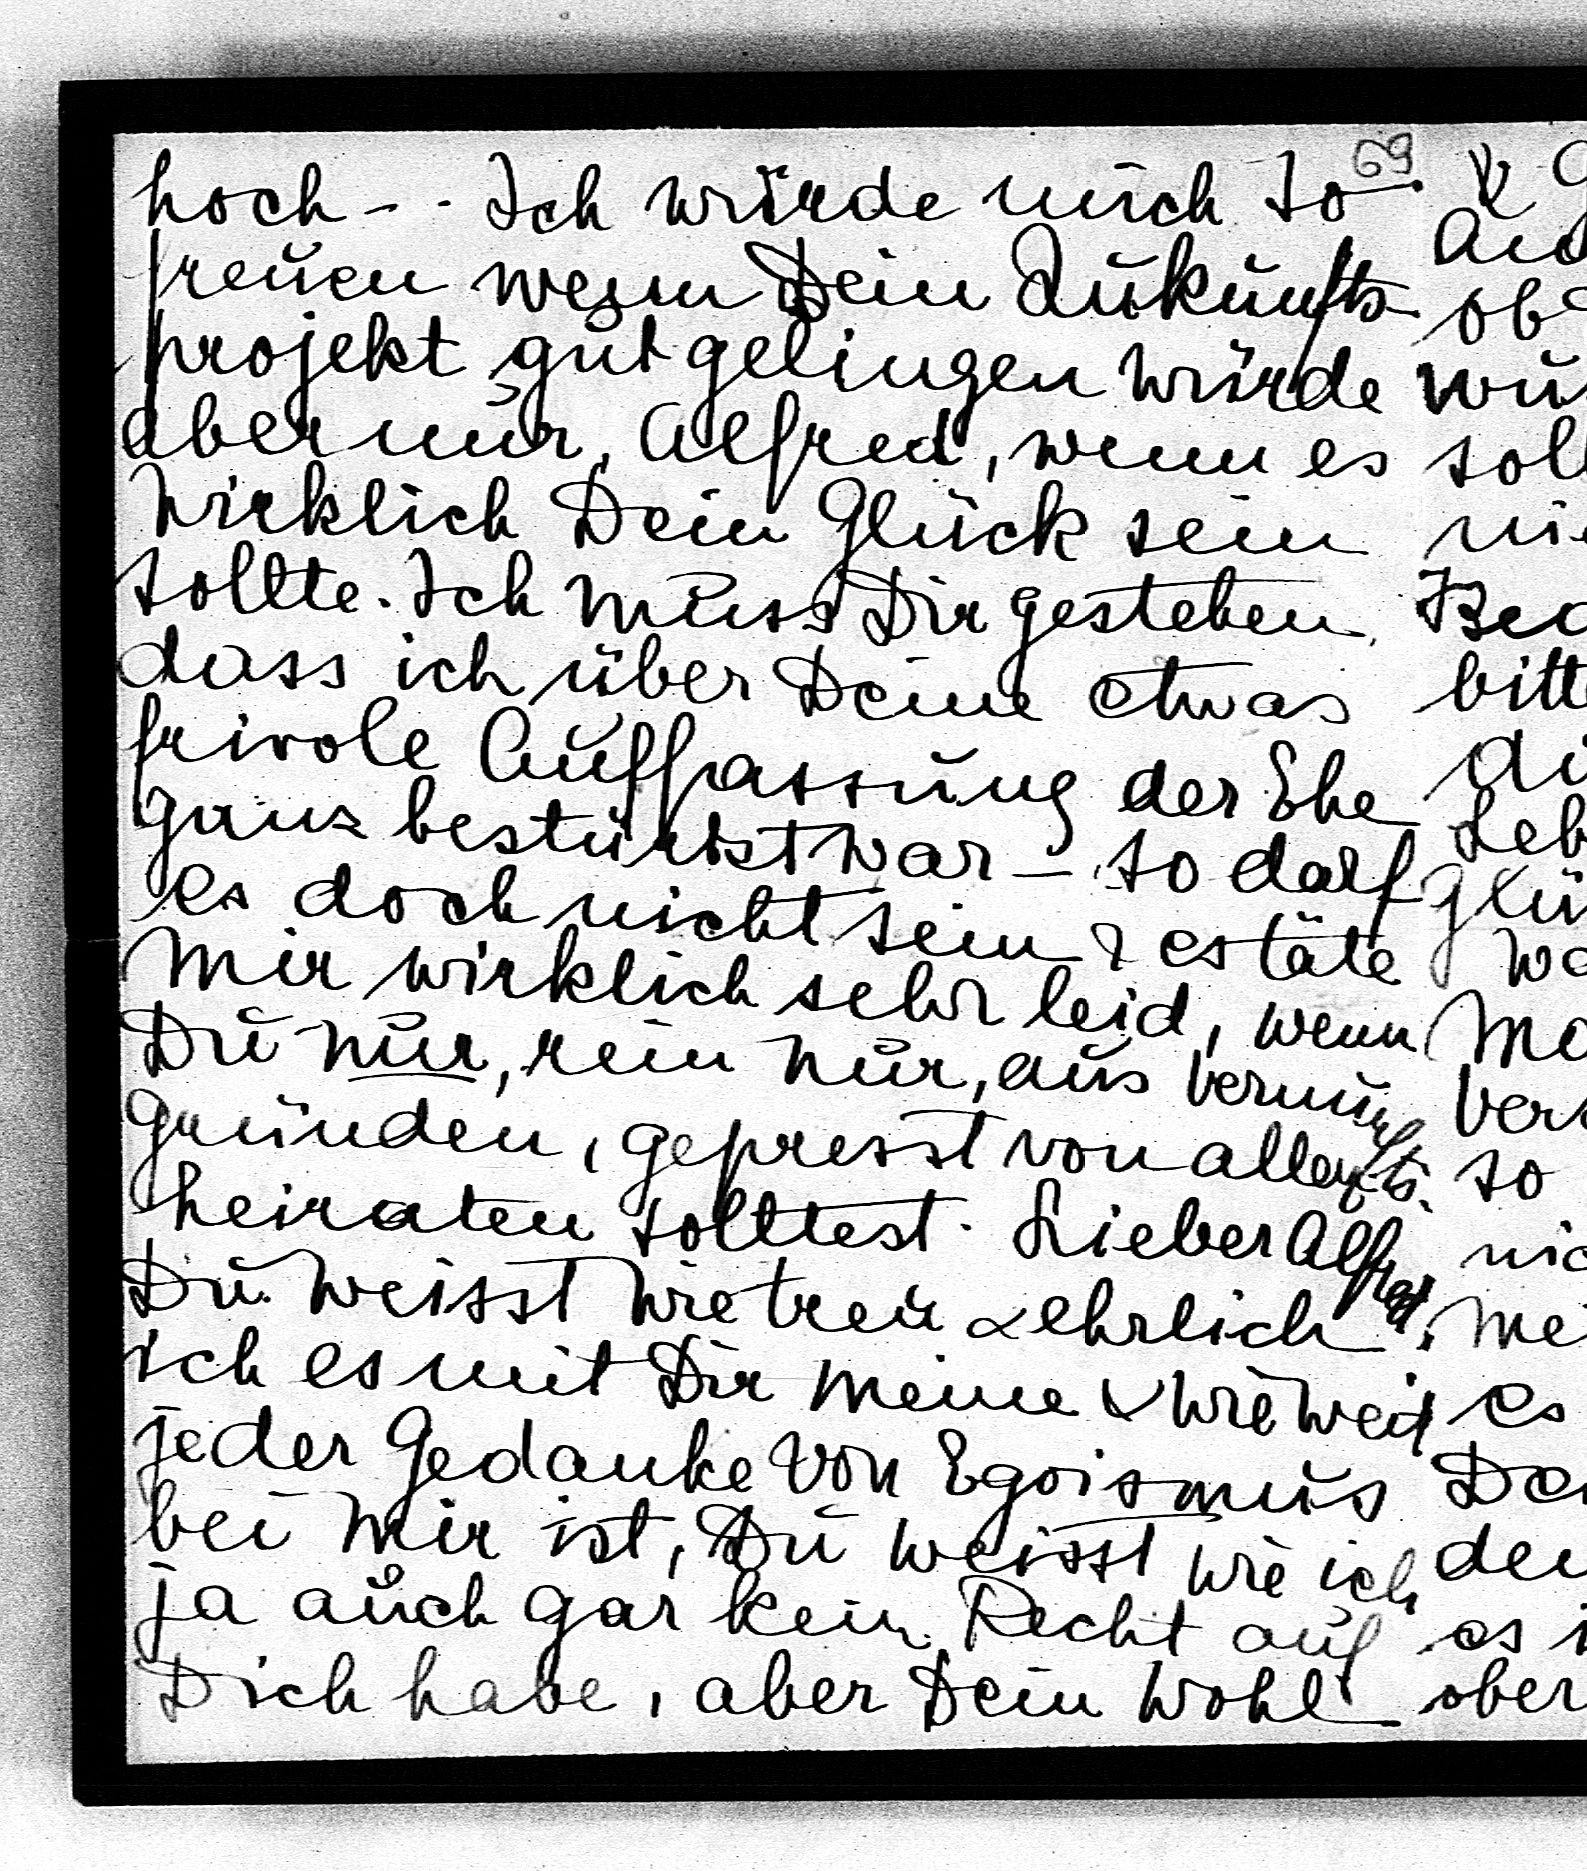 69
hoch - - Ich würde mich so
freuen wenn Dein Zukunfts
projekt gut gelingen würde
aber nur, Alfred, wenn es
wirklich Dein Glück sein
sollte. Ich muss Dir gestehen,
dass ich über Deine etwas
frivole Auffassung der Ehe
ganz bestürtzt war – so darf
es doch nicht sein & es täte
mir wirklich sehr leid, wenn
Du nur, rein nur, aus Vernunfts
gründen, gepresst von allerhts.
heiraten solltest. Lieber Alfred,
Du weisst wie treu & ehrlich
ich es mit Dir meine & wie weit
jeder Gedanke von Egoismus
bei mir ist, Du weisst wie ich
ja auch gar kein Recht auf
Dich habe, aber Dein Wohl
&
ob
so
es
es
ober